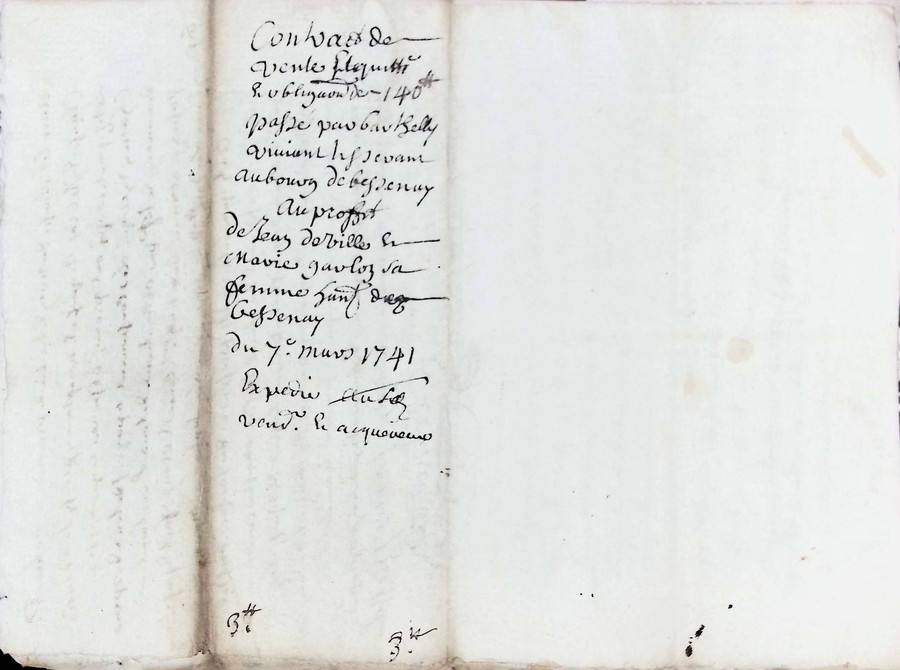 Contract de
vente
Et obligaon de 140 ₶
passé par barthelly
viviant tisserant
au bourg de bessenay
au proffit
de Jean deville Et
Marie sa
femme
bessenay
du 7e. mars 1741
Expedie
vendr. Et acquereurs
3 ₶.
3 ₶.